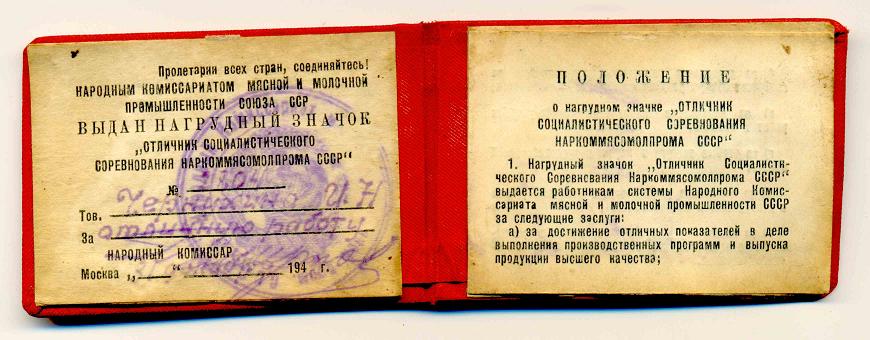 Пролетарии всех стран, соединяйтесь!
НАРОДНЫМ КОМИССАРИАТОМ МЯСНОЙ И МОЛОЧНОЙ
ПРОМЫШЛЕННОСТИ СОЮЗА ССР
ВЫДАН НАГРУДНЫЙ ЗНАЧОК
„ОТЛИЧНИК СОЦИАЛИСТИЧЕСКОГО
СОРЕВНОВАНИЯ НАРКОММЯСОМОЛПРОМА СССР“
№
Тов.
За отличную работу
НАРОДНЫЙ КОМИССАР
Москва „ “ 194 г.
ПОЛОЖЕНИЕ
о нагрудном значке „ОТЛИЧНИК
СОЦИАЛИСТИЧЕСКОГО СОРЕВНОВАНИЯ
НАРКОММЯСОМОЛПРОМА СССР“
1. Нагрудный значок „Отличник Социалисти-
ческого Соревнования Наркоммясомолпрома СССР“
выдается работникам системы Народного Комис-
сариата мясной и молочной промышленности СССР
за следующие заслуги:
а) за достижение отличных показателей в деле
выполнения производственных программ и выпуска
продукции высшего качества;